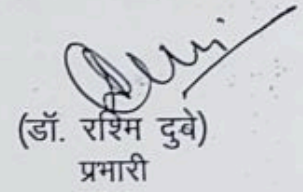 (डॉ. रश्मि दुबे)
प्रभारी